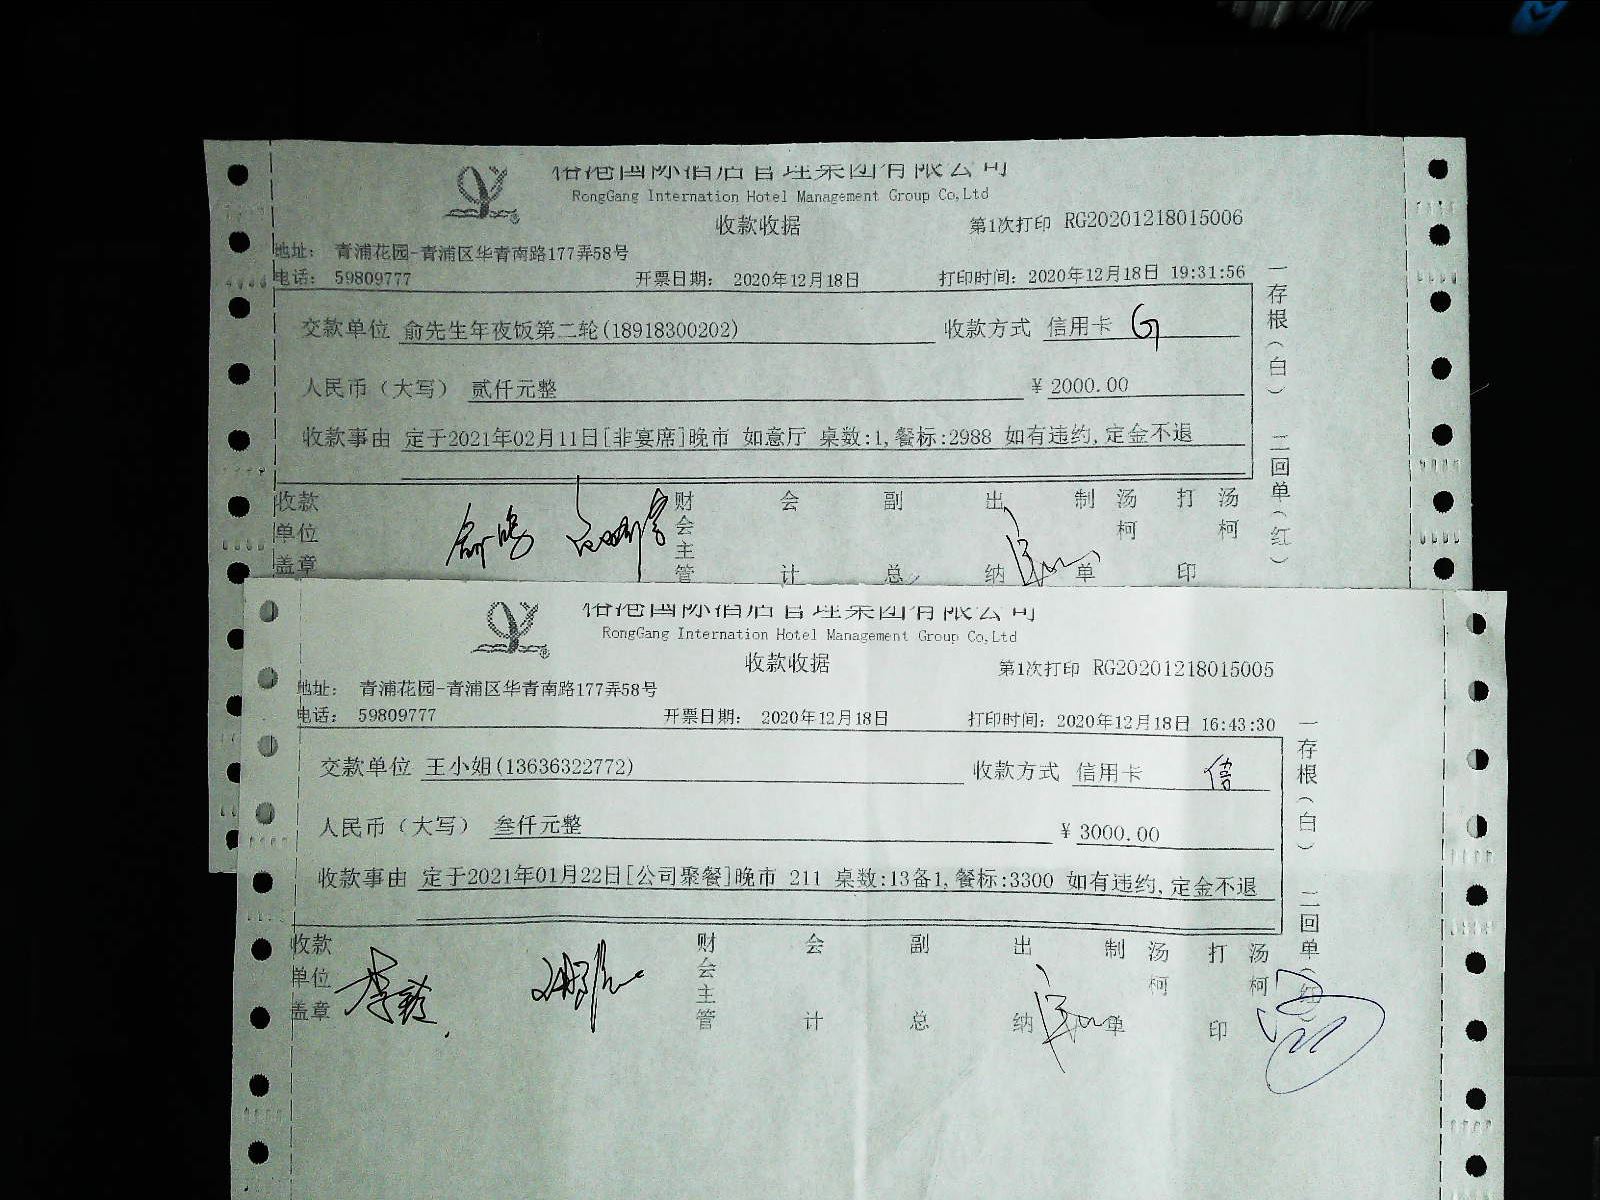 裕港国际酒店管理集团有限公司
RongGang Internation Hotel Management Group Co,Ltd
收款收据
第1次打印 RG20201218015006
地址： 青浦花园-青浦区华青南路177弄58号
电话： 59809777 开票日期： 2020年12月18日 打印时间：2020年12月18日 19:31:56
交款单位 俞先生年夜饭第二轮(18918300202) 收款方式 信用卡 G
人民币（大写） 贰仟元整 ¥ 2000.00
收款事由 定于2021年02月11日[非宴席]晚市 如意厅 桌数:1,餐标:2988 如有违约,定金不退
一存根（白） 二回单（红）
收款单位盖章 财会主管 会计 副总 出纳 制单 汤柯 打印 汤柯
裕港国际酒店管理集团有限公司
RongGang Internation Hotel Management Group Co,Ltd
收款收据
第1次打印 RG20201218015005
地址： 青浦花园-青浦区华青南路177弄58号
电话： 59809777 开票日期： 2020年12月18日 打印时间：2020年12月18日 16:43:30
交款单位 王小姐(13636322772) 收款方式 信用卡 信
人民币（大写） 叁仟元整 ¥ 3000.00
收款事由 定于2021年01月22日[公司聚餐]晚市 211 桌数:13备1,餐标:3300 如有违约,定金不退
一存根（白） 二回单（红）
收款单位盖章 财会主管 会计 副总 出纳 制单 汤柯 打印 汤柯